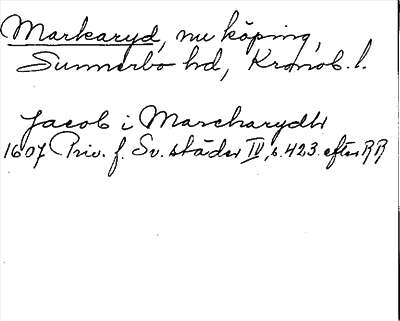 Markaryd, nu köping,
Sunnerbo hd, Kronob. l.
Jacob i Marcharydh
1607 Priv. f. Sv. städer IV, s. 423 efter RR